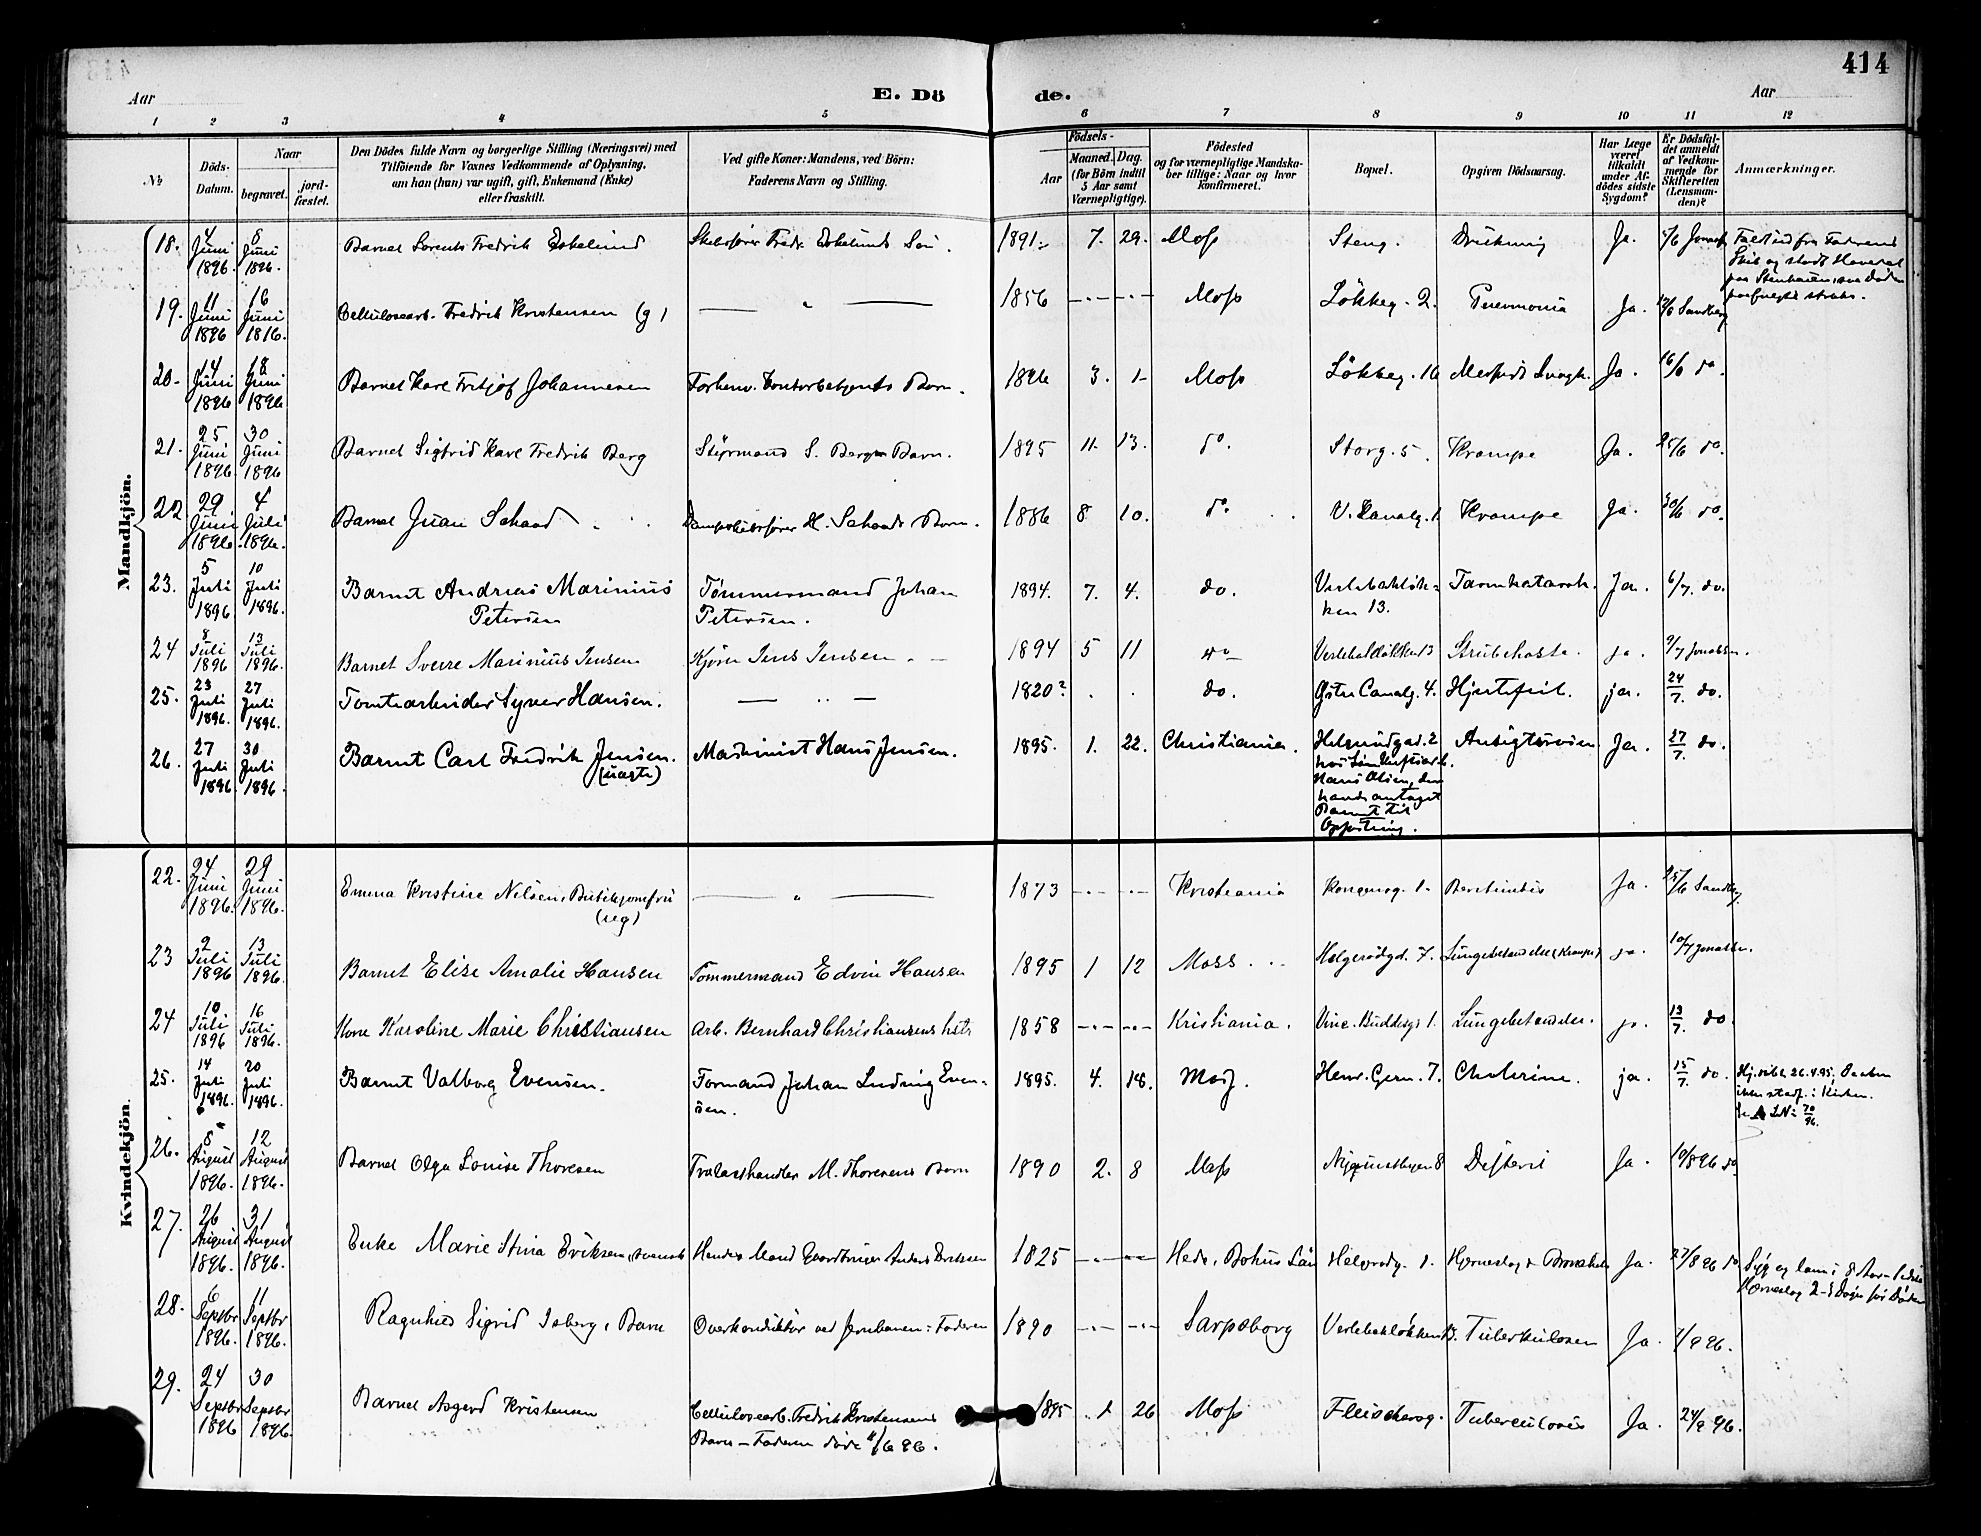 414
Aar
E. Dö
de.
Aar
1 2 3 4 5 6 7 8 9 10 11 12
№
Döds-
Datum.
Naar
begravet.
jord-
fæstet.
Den Dödes fulde Navn og borgerlige Stilling (Næringsvei) med
Tilföiende for Voxnes Vedkommende af Oplysning,
om han (hun) var ugift, gift, Enkemand (Enke)
eller fraskilt.
Ved gifte Koner: Mandens, ved Börn:
Faderens Navn og Stilling.
Födsels-
Aar
Maaned. Dag.
(for Börn indtil
5 Aar samt
Værnepligtige).
Födested
og for værnepligtige Mandska-
ber tillige: Naar og hvor
konfirmeret.
Bopæl.
Opgiven Dödsaarsag.
Har Læge
været
tilkaldt
under Af-
dödes sidste
Sygdom?
Er Dödsfal-
det anmeldt
af Vedkom-
mende for
Skifteretten
(Lensman-
den)?
Anmærkninger.
Mandkjön.
18. 4 Juni 1896. 8 Juni 1896. Barnet Lorents Fredrik Eskelund Skibsfører Fredr. Eskelunds Søn. 1891. 7. 29. Moss Steng. Drukning Ja. 5/6
Faldt ud fra Faderens
Skib og stødt Hovedet
19. 11 Juni 1896 16 Juni 1816. Cellulosearb. Fredrik Kristensen (g) — " — 1856 — Moss Løkkeg. 2. Pneumonia Ja. 12/6 Sandberg
20. 14 Juni 1896 18 Juni 1896 Barnet Karl Fritjof Johannesen Forhenv. Kontorbetjents Barn. 1896 3. 1 Moss Løkkeg. 16 Medfødt Svagh. Ja. 16/6 do.
21. 25 Juni 1896 30 Juni 1896 Barnet Sigfrid Karl Fredrik Berg Styrmand S. Bergs Barn. 1895 11. 13. do. Storg. 5. Krampe Ja. 25/6 do.
22 29 Juni 1896. 4 Juli 1896. Barnet Juan Schaad Dampskibsfører H. Schaads Barn. 1886 8 10. do. V. Kanalg. 1. Krampe Ja. 30/6 do.
23. 5 Juli 1896 10 Juli 1896. Barnet Andreas Marinius Tømmermand Johan 1894. 7. 4. do. Verlebakløk- Tarmkatarrh. Ja. 6/7. do.
Petersen Petersen. ken 13.
24 8 Juli 1896 13 Juli 1896. Barnet Sverre Marinius Jensen Kjører Jens Jensen. 1894 5 11 do Verlebakløkken 13 Strubehoste. ja. 9/7 Jonassen.
25. 23 Juli 1896. 27 Juli 1896. Tomtearbeider Syver Hansen. — " — 1820? . . do. Østre Canalg. 4. Hjertefeil. ja. 24/7. do.
26. 27 Juli 1896. 30 Juli 1896. Barnet Carl Fredrik Jensen. Maskinist Hans Jensen. 1895. 1. 22. Christiania. Helgerødgad. 2 Ansigtsrosen Ja. 27/7. do.
(uægte)
Hans Olsen, der
havde antaget
Barnet til
Opfostring.
Kvindekjön.
22. 24 Juni 1896. 29 Juni 1896. Emma Kristine Nilsen, Butikjomfru — " — 1873 — Kristiania Kongensg. 1. Ja. 25/6 Sandberg
(ug)
23 9 Juli 1896 13 Juli 1896. Barnet Elise Amalie Hansen Tømmermand Edvin Hansen 1895 1 12 Moss. Helgerødgd. 7. Lungebetændelse (Krampe) ja. 10/7 Jonassen.
24 10 Juli 1896 16 Juli 1896. Kone Karoline Marie Christiansen Arb. Bernhard Christiansens hstr 1858 — Kristiania. Vinc. Buddesgt 1. Lungebetændelse. ja. 13/7. do.
25. 14 Juli 1896. 20 Juli 1896. Barnet Valborg Evensen. Formand Johan Ludvig Even- 1895. 4. 18. Moss. Henr. Gern. 7. Cholerine. ja. 15/7. do.
sen.
Hj.døbt 26.4.95. Daaben
ikke stadf. i Kirken.
26. 8 August 1896. 12 August 1896. Barnet Olga Louise Thoresen Trælasthandler M. Thoresens Barn 1890 2. 8 Moss 8 Difteri Ja. 10/8 96 do.
27. 26 August 1896. 31 August 1896. Enke Marie Stina Eriksen, svensk Hendes Mand Anders Eriksen 1825 — Hede, Bohus Län Helgerødg. 1. Hjerneslag & Ja. 27/8 96 do
Syg og lam i 8 Aar
Hjerneslag 2-3 Døgn før Døden
28. 6 Septbr 1896. 11 Septbr 1896. Ragnhild Sigrid Isberg, Barn Overkonduktør ved Jernbanen: Faderen 1890 — Sarpsborg Verlebakløkken 13. Tuberkulosen Ja. 7/9 96.
29. 24 Septbr 1896 30 Septbr 1896. Barnet Asgerd Kristensen Cellulosearb. Fredrik Kristensens 1895 1 26 Moss Fleischerg. Tuberculosis Ja. 24/9 96.
Barn — Faderen døde 11/6 96.